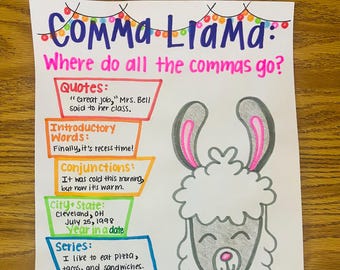 Comma Llama:
Where do all the commas go?
Quotes:
"Great job," Mrs. Bell
said to her class.
Introductory
Words:
Finally, it's recess time!
Conjunctions:
It was cold this morning,
but now it's warm.
City + State:
Cleveland, OH
July 25, 1998
Year in a date
Series:
I like to eat pitta,
tacos, and sandwiches.